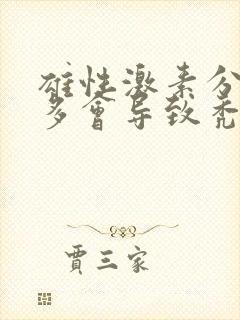 雄性激素分
多會导致秃
賈三家